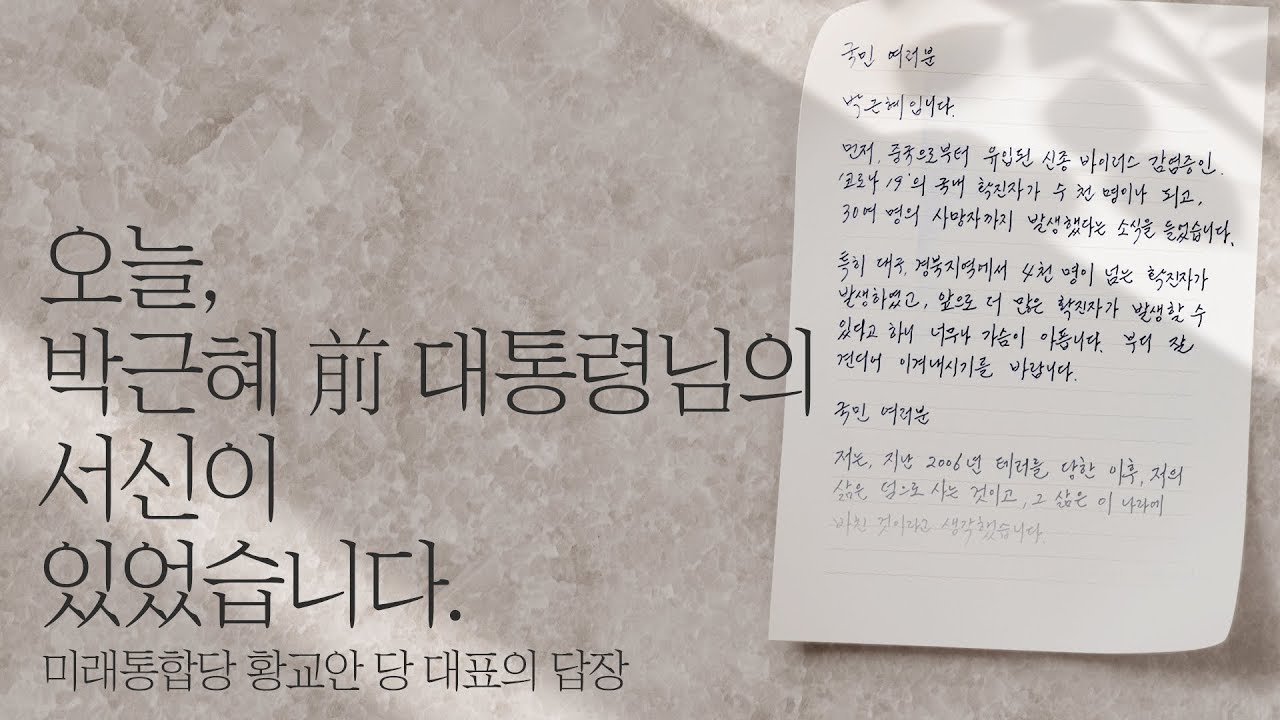 오늘,
박근혜 前 대통령님의
서신이
있었습니다.
미래통합당 황교안 당 대표의 답장
국민 여러분
박근혜입니다.
먼저, 중국으로부터 유입된 신종 바이러스 감염증인,
'코로나 19'의 국내 확진자가 수 천 명이나 되고,
30여 명의 사망자까지 발생했다는 소식을 들었습니다.
특히 대구, 경북지역에서 4천 명이 넘는 확진자가
발생하였고, 앞으로 더 많은 확진자가 발생할 수
있다고 하니 너무나 가슴이 아픕니다. 부디 잘
견디어 이겨내시기를 바랍니다.
국민 여러분
저는, 지난 2006년 테러를 당한 이후, 저의
삶은 덤으로 사는 것이고, 그 삶은 이 나라에
바친 것이라고 생각했습니다.